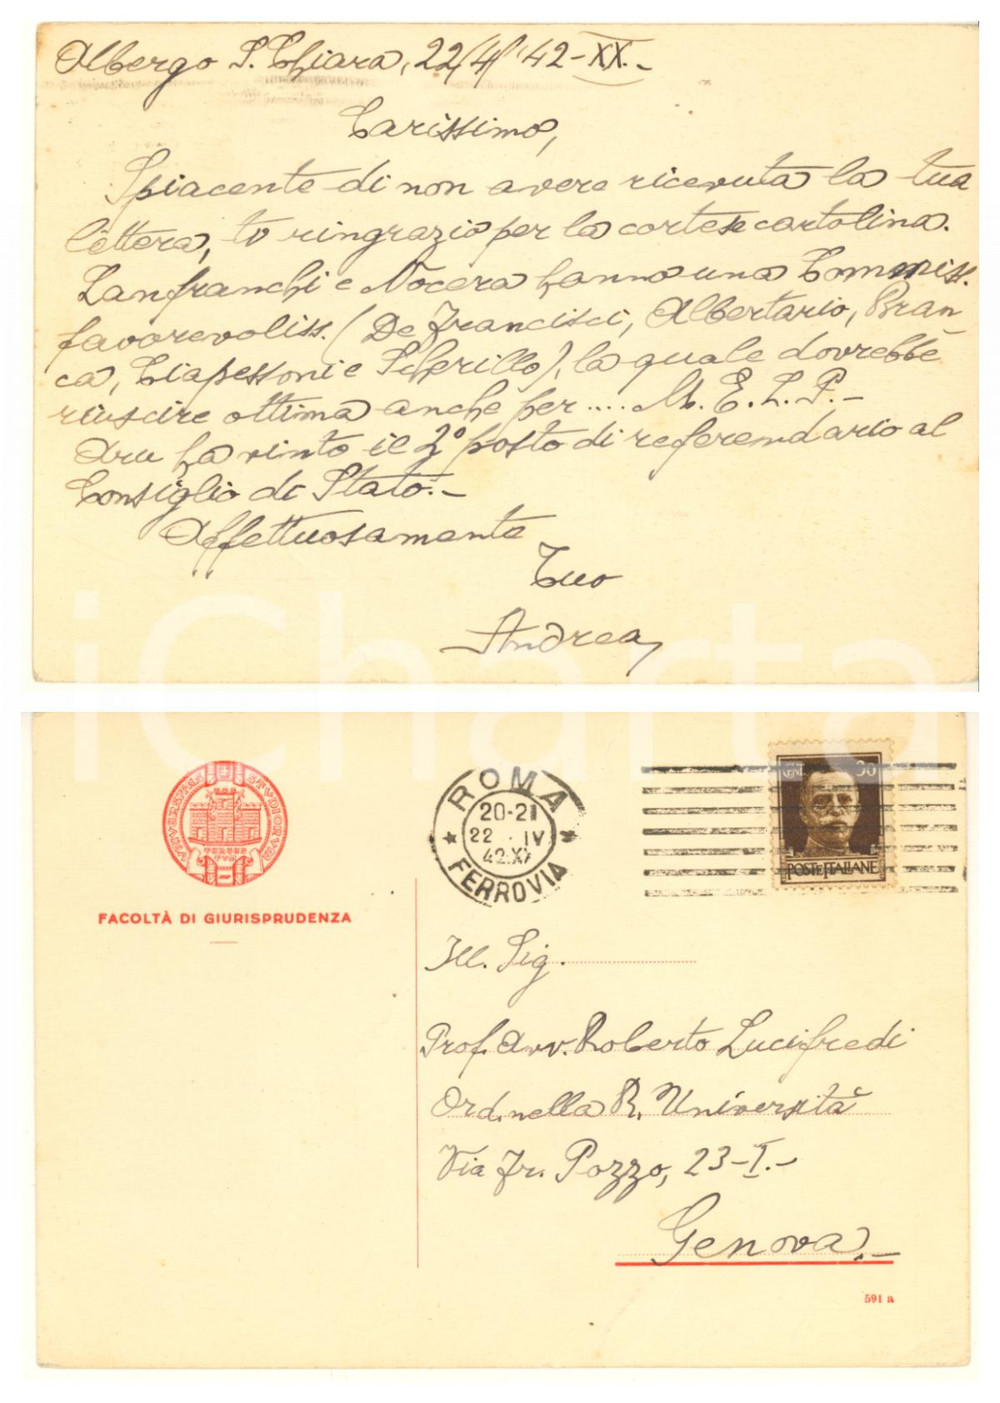 Albergo S. Chiara, 22/4/'42-XX.-
Carissimo,
Spiacente di non avere ricevuta la tua
lettera, ti ringrazio per la cortese cartolina.
Lanfranchi e Nocera hanno una Commiss.
favorevoliss. (De Francisci, Albertario, Bran-
ca, Ciapessoni e Scherillo), la quale dovrebbe
riuscire ottima anche per .... M. E. L. P.-
Aru ha vinto il 2° posto di referendario al
Consiglio di Stato.-
Affettuosamente
Tuo
Andrea
iCharta
ROMA
20-21
22 . IV
42.XX
FERROVIA
POSTE ITALIANE
FACOLTÀ DI GIURISPRUDENZA
Ill. Sig.
Prof. Avv. Roberto Lucifredi
Ord. nella R. Università
Via Fr. Pozzo, 23-I.-
Genova.-
591 a